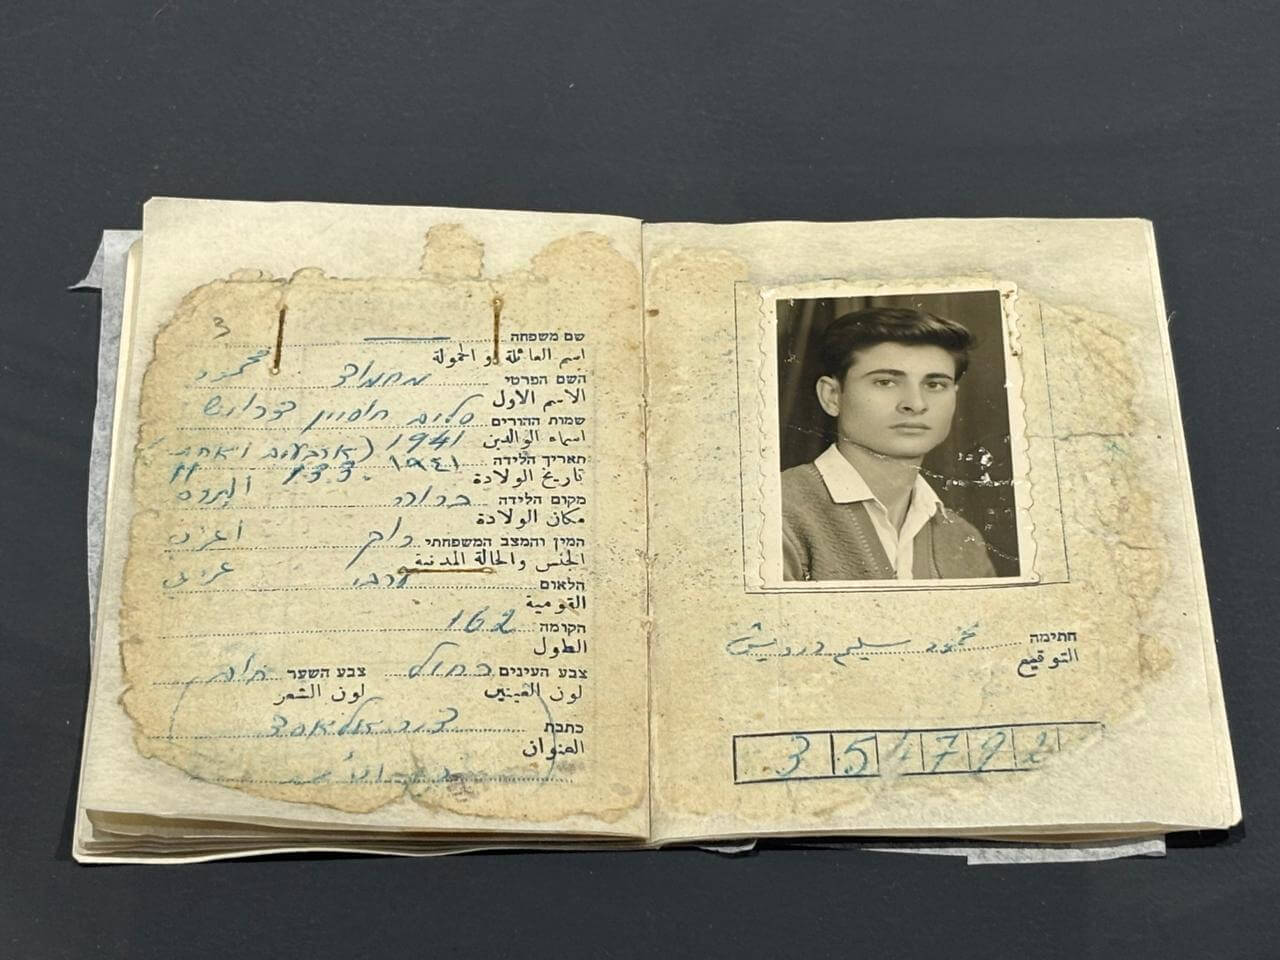 שם משפחה
اسم العائلة او الحمولة
השם הפרטי מחמוד محمود
الاسم الاول
שמות ההורים סלים חוסיין דרויש
اسماء الوالدين
תאריך הלידה 1941 (ארבעים ואחת
تاريخ الولادة ١٩٤١
מקום הלידה ברווה
مكان الولادة
המין והמצב המשפחתי רווק
الجنس والحالة المدنية
הלאום ערבי عربي
القومية
הקומה 162
الطول
צבע העינים כחול צבע השער חום
لون العينين لون الشعر
כתבת
العنوان
חתימה محمود سليم درويش
التوقيع
3 5 4 7 9 2